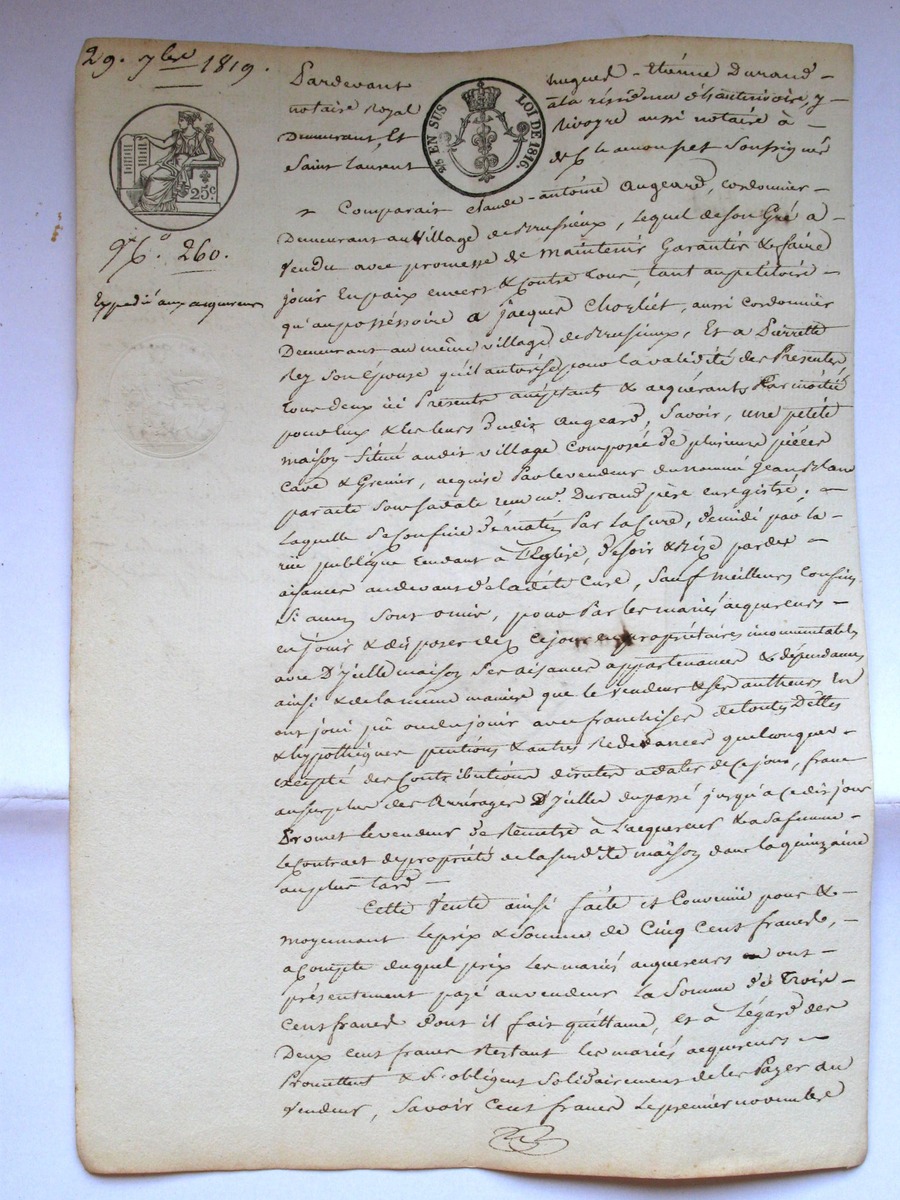 29. 7bre 1819.
Pardevant hugues - Etienne Durand -
notaire Royal à la résidence d'hauterivoire, y
Demeurant, Et Rivoyre aussi notaire à -
Saint Laurent de Chamousset Soussignés
2/5 EN SUS LOI DE 1816.
25 c.
N.o 260.
Expédié aux acquereurs
Comparait Claude - antoine augeard, cordonnier -
Demeurant au Village de Brussieux, lequel de son Gré a
Vendu avec promesse de maintenir Garantir & faire
jouir En paix envers & Contre tous, tant au pétitoire -
qu'au posséssoire a jacques Chorliet, aussi cordonnier
Demeurant au même village de Brussieux, Et a Pierrette
Rey Son épouse qu'il autorise pour la validité des Présentes
tous deux ici Présents acceptants & acquérants Par moitié
pour Eux & les leurs Dudit augeard, Savoir, une petite
maison Située audit village Composée de plusieurs pièces
Cave & Grenier, acquise Par le vendeur du nommé Jean Blanc
par acte Sous sa date reçu Me. Durand père enregistré; -
Laquelle Se Confine De matin Par la Cure, De midi par la
rue publique tendant à L'Eglise, De soir & bize par des -
aisances au devant de ladite Cure, Sauf meilleurs Confins
Si aucuns Sont omis, pour Par les mariés acquereurs -
en jouir & disposer dès Ce jour en propriétaires incommutables
avec D'Icelle maison Ses aisances appartenances & dépendances
ainsi & de la même manière que le Vendeur & Ses autheurs En
ont joui pû ou dû jouir avec franchises de toutes Dettes
& hypothèques pentions & autres Redevances quelconques -
excepté des Contributions directes a dater de Ce jour, franc
au Surplus des Arrérages D'Icelles du passé jusqu'a Cedit jour
Promet le vendeur De Remettre à L'acquereur & a Sa femme
Le Contract de propriété de la Susdite maison dans la quinzaine
au plus tard -
Cette Vente ainsi faite et Convenue pour & -
moyennant Le prix & Somme de Cinq Cent francs, -
a Compte duquel prix Les mariés acquereurs ont -
présentement payé au vendeur La Somme De Trois -
Cent francs Dont il fait quittance, et à Légard des
Deux cent francs Restant les mariés acquereurs -
Promettent & S'obligent Solidairement de les Payer au
Vendeur, Savoir Cent francs Le premier novembre